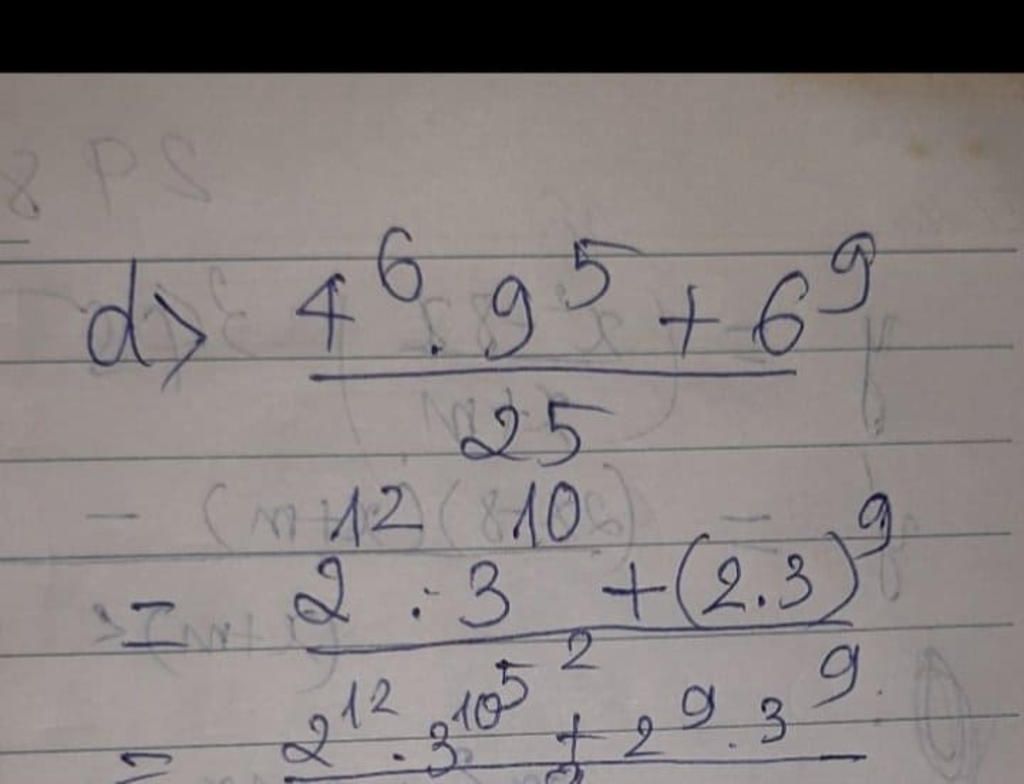 d> 4^6 . 9^5 + 6^9
25
= 2^12 . 3^10 + (2.3)^9
5^2
= 2^12 . 3^10 + 2^9 . 3^9